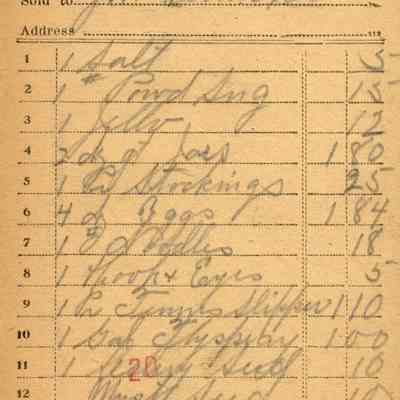 Sold to
Address
1 1 Salt 5
2 1 # Powd Sug 15
3 1 Jelly 12
4 2 dz qt Jars 1 80
5 1 Pr Stockings 25
6 4 dz Eggs 1 84
7 1 Noodles 18
8 1 Hook & Eyes 5
9 1 Pr Tennis Slipper 1 10
10 1 Gal Flyspray 1 00
11 1 Seed 10
20
12 Seed 10